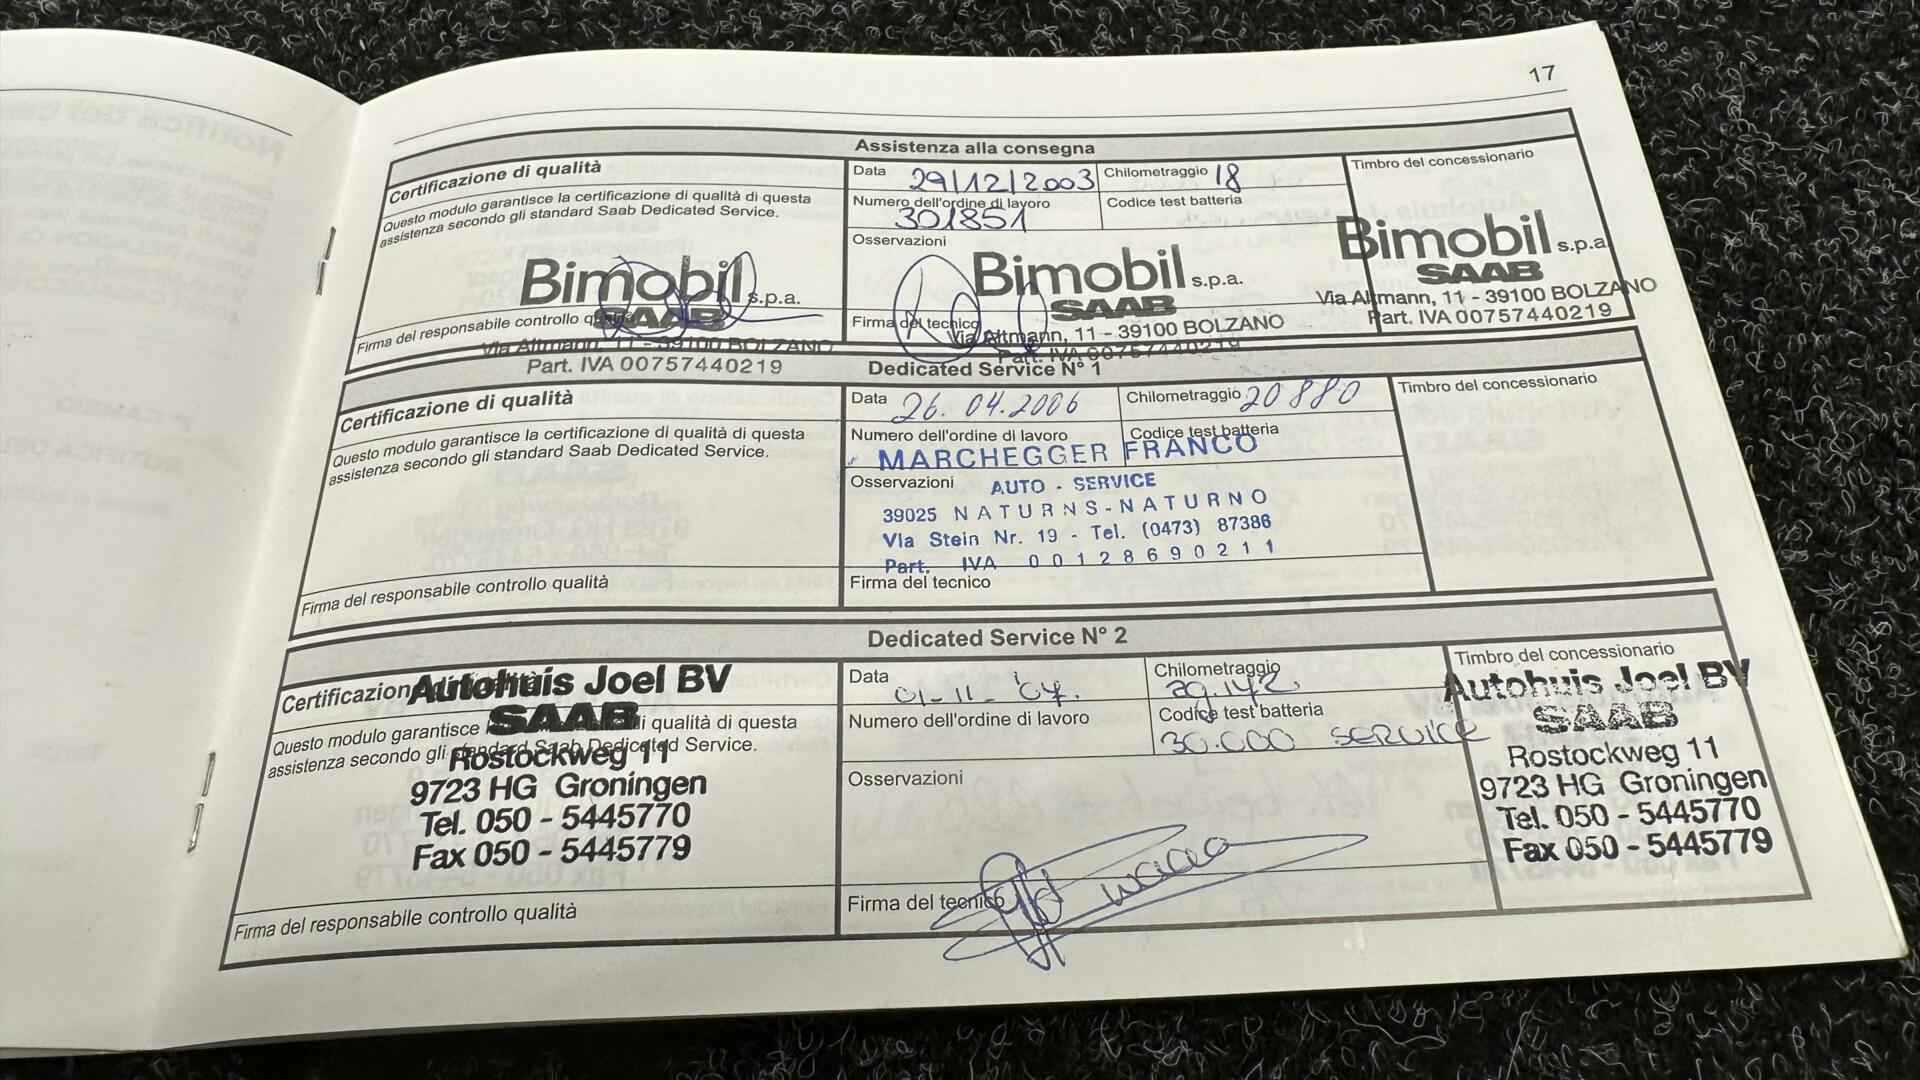 17
Assistenza alla consegna
Certificazione di qualità
Questo modulo garantisce la certificazione di qualità di questa
assistenza secondo gli standard Saab Dedicated Service.
Bimobil s.p.a.
SAAB
Firma del responsabile controllo qualità
Via Altmann, 11 - 39100 BOLZANO
Part. IVA 00757440219
Data 29/12/2003
Chilometraggio 18
Numero dell'ordine di lavoro
301851
Codice test batteria
Osservazioni
Bimobil s.p.a.
SAAB
Firma del tecnico
Via Altmann, 11 - 39100 BOLZANO
Part. IVA 00757440219
Timbro del concessionario
Bimobil s.p.a.
SAAB
Via Altmann, 11 - 39100 BOLZANO
Part. IVA 00757440219
Dedicated Service N° 1
Certificazione di qualità
Questo modulo garantisce la certificazione di qualità di questa
assistenza secondo gli standard Saab Dedicated Service.
Firma del responsabile controllo qualità
Data 26.04.2006
Chilometraggio 20880
Numero dell'ordine di lavoro
Codice test batteria
MARCHEGGER FRANCO
Osservazioni
AUTO - SERVICE
39025 NATURNS-NATURNO
Via Stein Nr. 19 - Tel. (0473) 87386
Part. IVA 00128690211
Firma del tecnico
Timbro del concessionario
Dedicated Service N° 2
Certificazione
Autohuis Joel BV
SAAB
Questo modulo garantisce la di qualità di questa
assistenza secondo gli standard Saab Dedicated Service.
Rostockweg 11
9723 HG Groningen
Tel. 050 - 5445770
Fax 050 - 5445779
Firma del responsabile controllo qualità
Data 01-11-'07.
Chilometraggio
29.142
Numero dell'ordine di lavoro
Codice test batteria
30.000 SERVICE
Osservazioni
Firma del tecnico
Timbro del concessionario
Autohuis Joel BV
SAAB
Rostockweg 11
9723 HG Groningen
Tel. 050 - 5445770
Fax 050 - 5445779